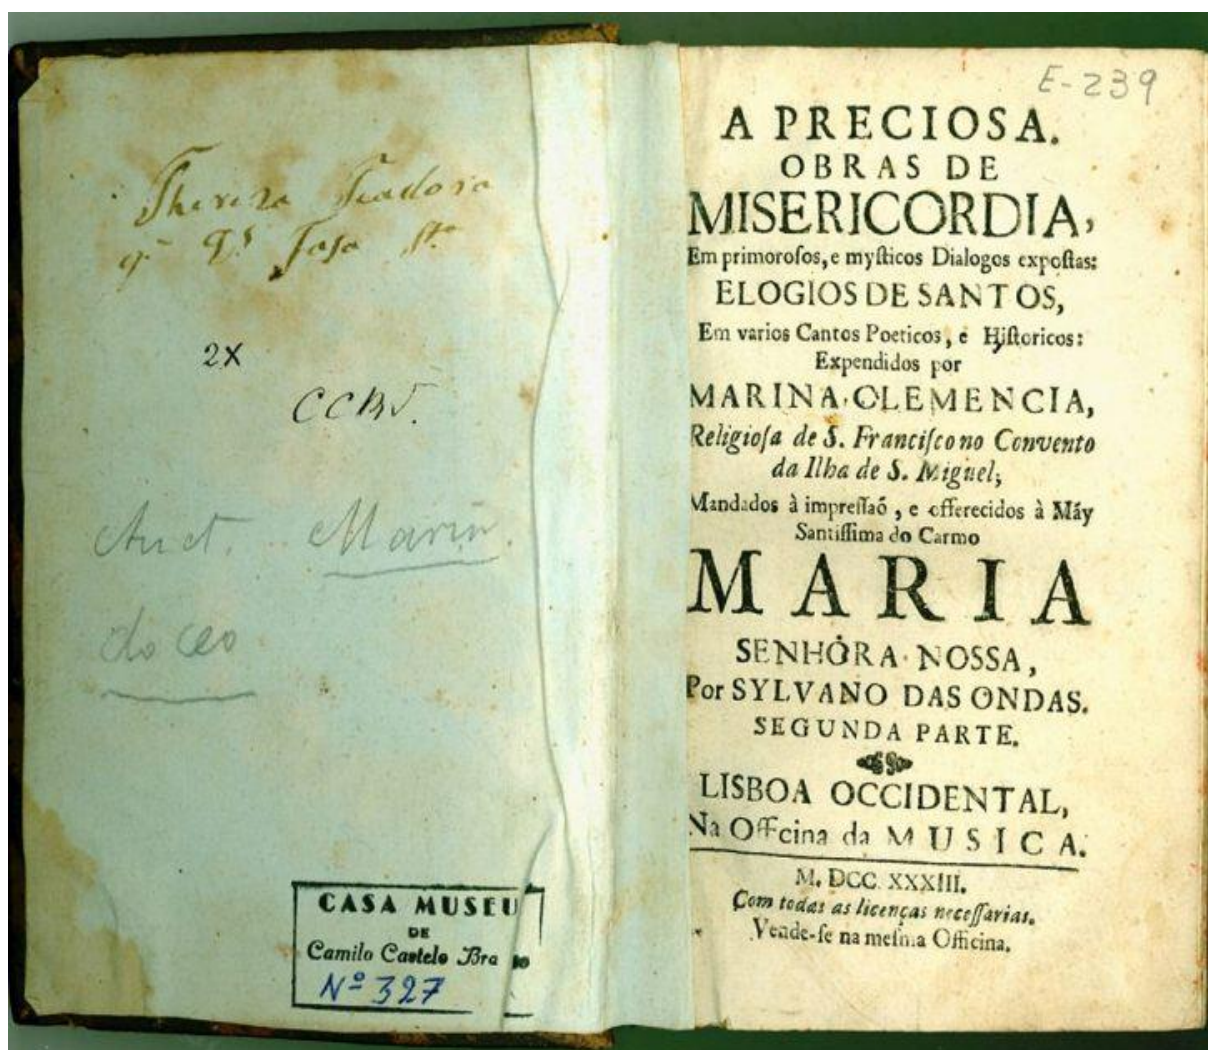 Thereza Teadora
2X
CCBJ.
Auct. Maria
do Ceo
CASA MUSEU
DE
Camilo Castelo Bra
Nº 327
E-239
A PRECIOSA.
OBRAS DE
MISERICORDIA,
Em primoroſos, e myſticos Dialogos expoſtas:
ELOGIOS DE SANTOS,
Em varios Cantos Poeticos, e Hiſtoricos:
Expendidos por
MARINA CLEMENCIA,
Religioſa de S. Franciſco no Convento
da Ilha de S. Miguel;
Mandados à impreſſaõ, e offerecidos à Máy
Santiſſima do Carmo
MARIA
SENHÓRA NOSSA,
Por SYLVANO DAS ONDAS.
SEGUNDA PARTE.
LISBOA OCCIDENTAL,
Na Officina da MUSICA.
M. DCC. XXXIII.
Com todas as licenças neceſſarias.
Vende-ſe na meſma Officina.